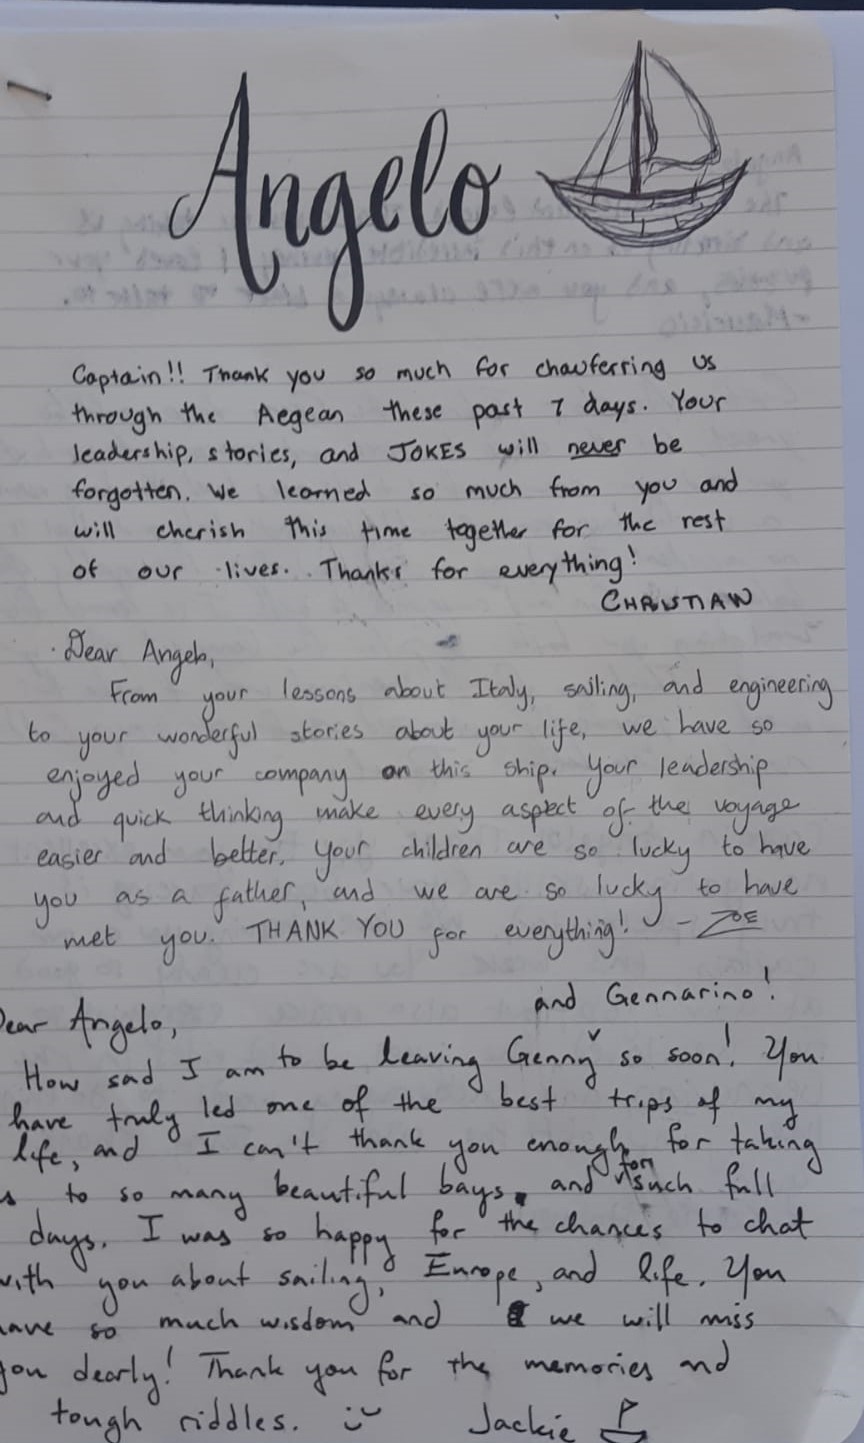 Angelo
Captain!! Thank you so much for chauferring us
through the Aegean these past 7 days. Your
leadership, stories, and JOKES will never be
forgotten. We learned so much from you and
will cherish this time together for the rest
of our lives. Thanks for everything!
CHRISTIAN
Dear Angelo,
From your lessons about Italy, sailing, and engineering
to your wonderful stories about your life, we have so
enjoyed your company on this ship. Your leadership
and quick thinking make every aspect of the voyage
easier and better. Your children are so lucky to have
you as a father, and we are so lucky to have
met you. THANK YOU for everything! - ZOE
and Gennarino!
ear Angelo,
How sad I am to be leaving Genny ˅ so soon! You
have truly led one of the best trips of my
life, and I can't thank you enough for taking
s to so many beautiful bays, and for such full
days. I was so happy for the chances to chat
with you about sailing, Europe, and life. You
ave so much wisdom and we will miss
you dearly! Thank you for the memories and
tough riddles. :) Jackie